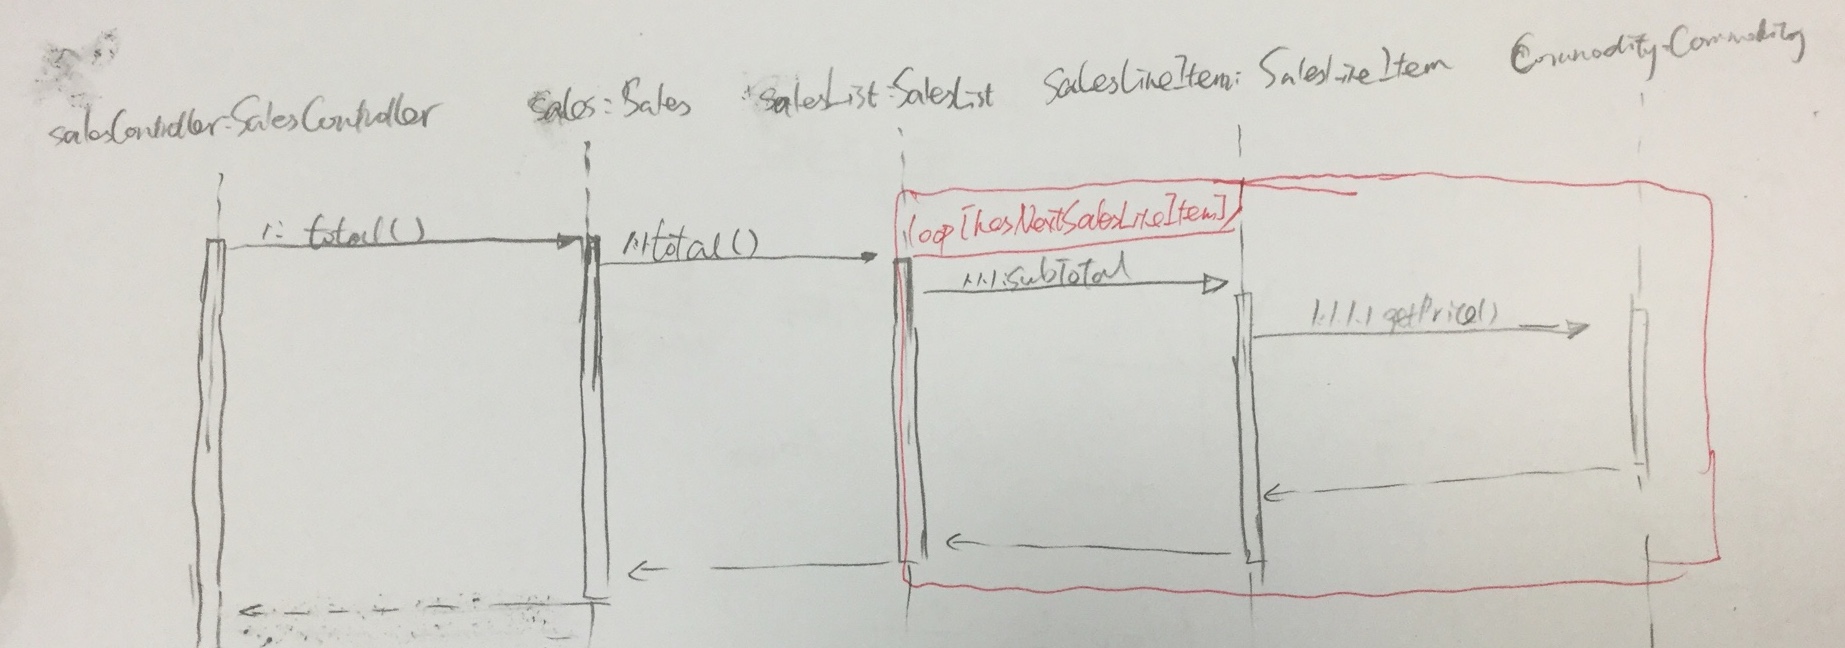 salesController:SalesController
sales:Sales
:salesList:SalesList
SalesLineItem: SalesLineItem
Commodity:Commodity
1: total()
1.1:total()
loop [hasNextSalesLineItem]
1.1.1:subTotal
1.1.1.1 getPrice()